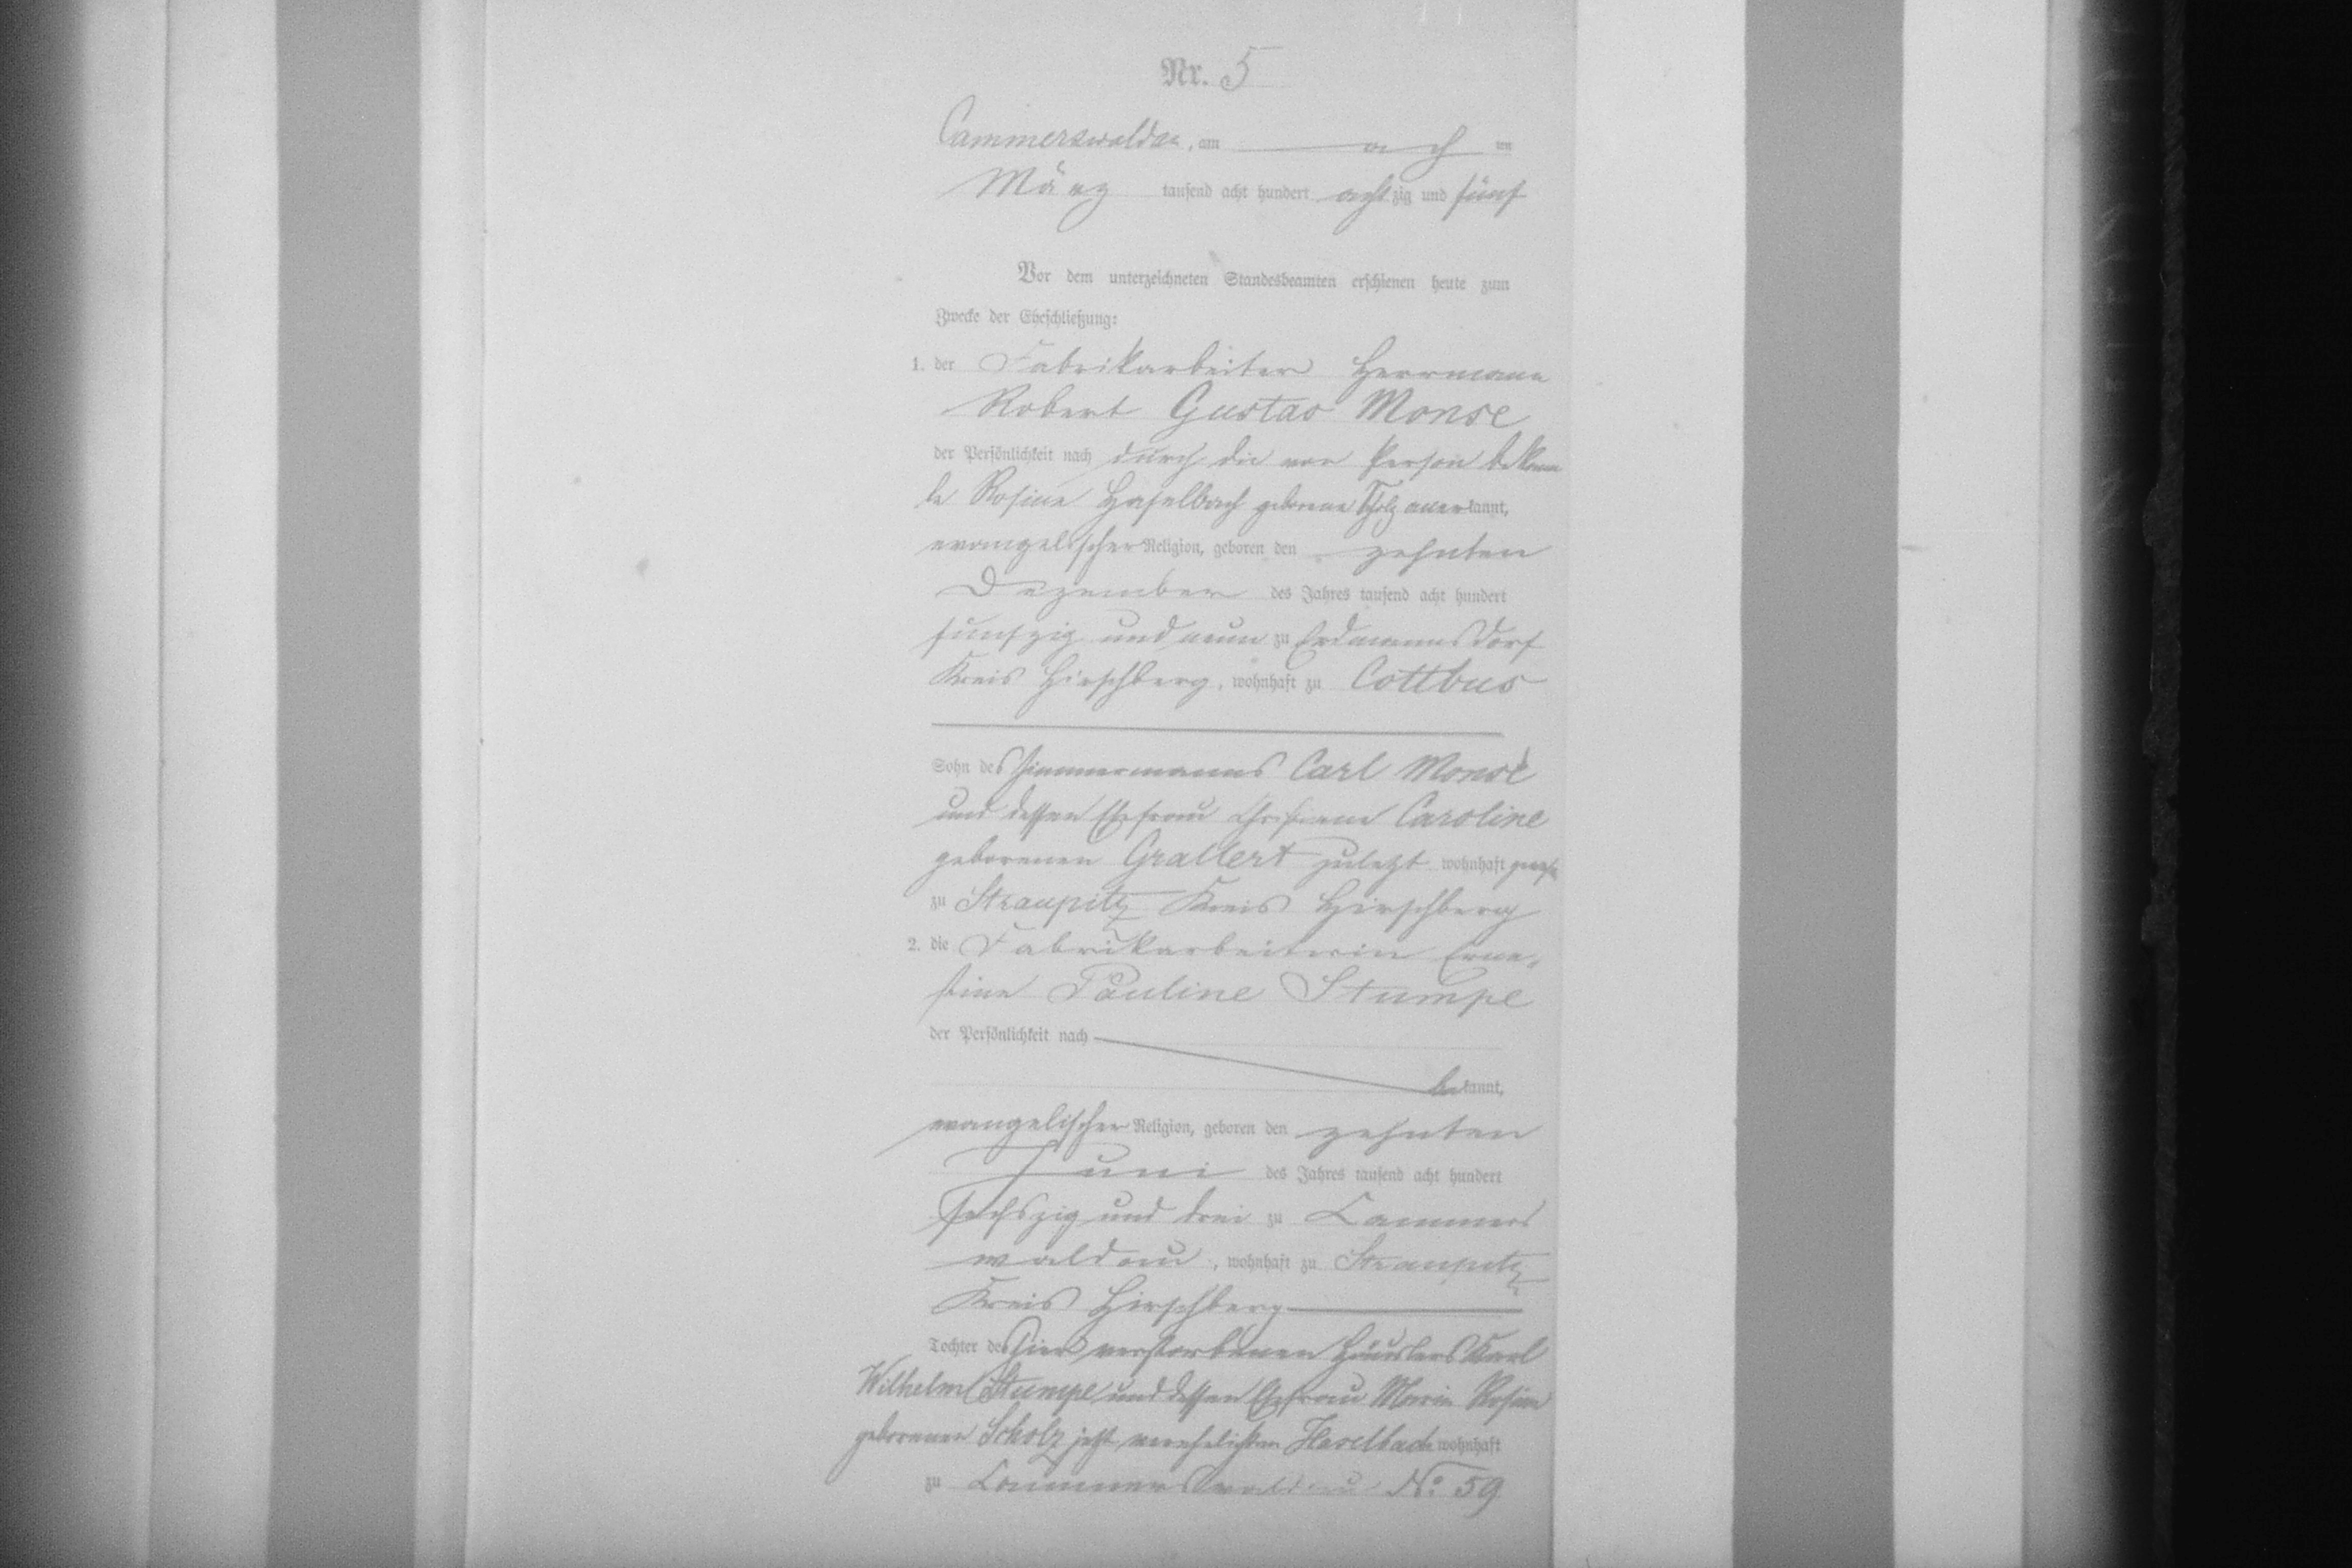 Nr. 5
Cammerswaldau, am ach ten
März tausend acht hundert achtzig und fünf
Vor dem unterzeichneten Standesbeamten erschienen heute zum
Zwecke der Eheschließung:
1. der Fabrikarbeiter Herrmann
Robert Gustav Monse
der Persönlichkeit nach durch die von Person bekann
te Rosine Haselbach geborene Scholz anerkannt,
evangelischer Religion, geboren den zehnten
Dezember des Jahres tausend acht hundert
fünfzig und neun zu Erdmannsdorf
Kreis Hirschberg, wohnhaft zu Cottbus
Sohn des Zimmermanns Carl Monse
und dessen Ehefrau Christiane Caroline
geborenen Grallert zuletzt wohnhaft
zu Straupitz Kreis Hirschberg
2. die Fabrikarbeiterin Erne-
stine Pauline Stumpe
der Persönlichkeit nach
bekannt,
evangelischer Religion, geboren den zehnten
Juni des Jahres tausend acht hundert
sechszig und drei zu Cammers
waldau, wohnhaft zu Straupitz
Kreis Hirschberg
Tochter des hier verstorbenen Häuslers Karl
Wilhelm Stumpe und dessen Ehefrau Marie Rosine
geborenen Scholz jetzt verehelichten Haselbach wohnhaft
zu Cammerswaldau No. 59